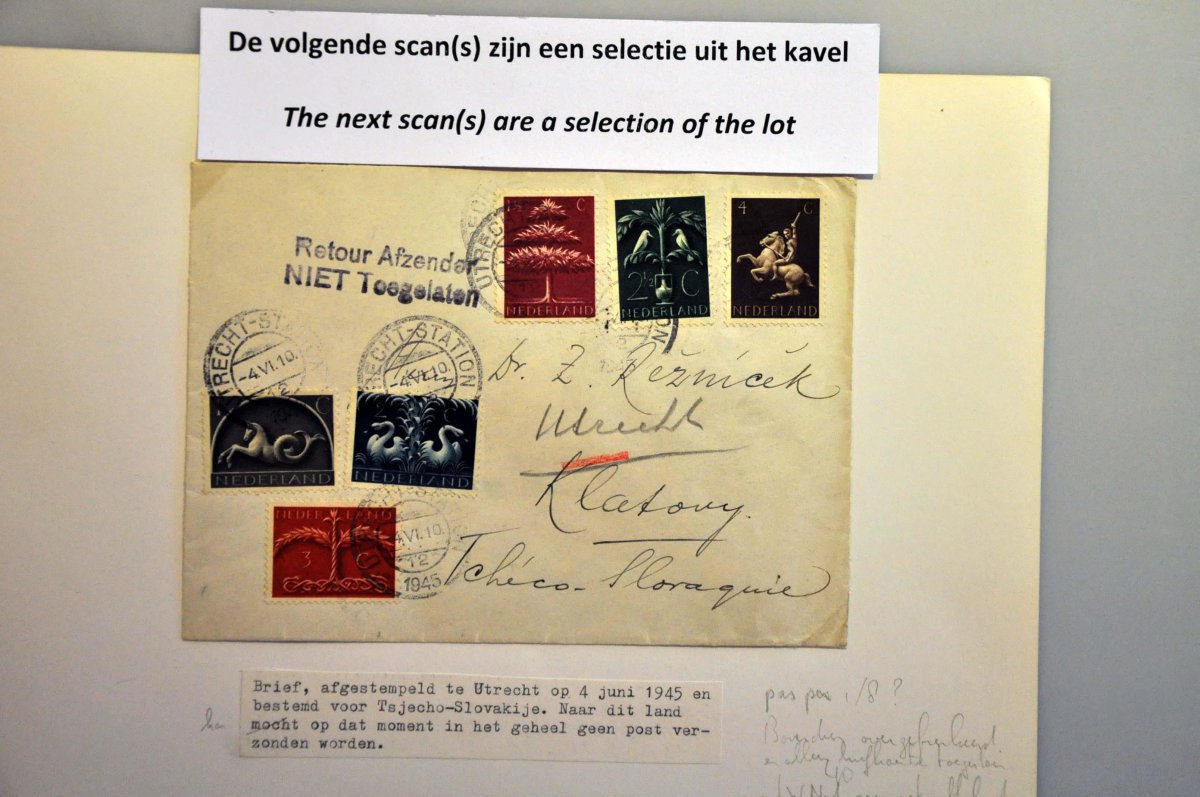 De volgende scan(s) zijn een selectie uit het kavel
The next scan(s) are a selection of the lot
Retour Afzender
NIET Toegelaten
C
NEDERLAND
2½ C
NEDERLAND
4 C
NEDERLAND
UTRECHT
UTRECHT-STATION
-4.VI.10.
12
UTRECHT-STATION
-4.VI.10.
12
C
NEDERLAND
NEDERLAND
NEDERLAND
3 C
4.VI.10.
12
1945
Dr. Z. Řežníček
Utrecht
Klatovy.
Tchéco-Slovaquie
Brief, afgestempeld te Utrecht op 4 juni 1945 en
bestemd voor Tsjecho-Slovakije. Naar dit land
mocht op dat moment in het geheel geen post ver-
zonden worden.